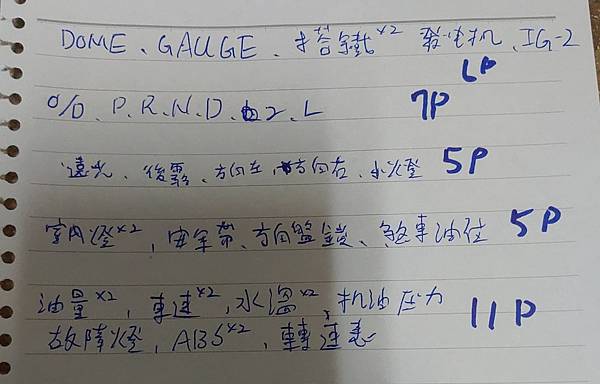 DOME、GAUGE、搭鐵x2 發电机、IG-2
6P
O/D、P.R.N.D.2、L 7P
遠光、後霧、方向左,方向右、小燈 5P
室內燈x2,安全帶、方向盤鎖、煞車油位 5P
油量x2,車速x2,水溫x2、机油压力
故障燈,ABSx2,轉速表 11P